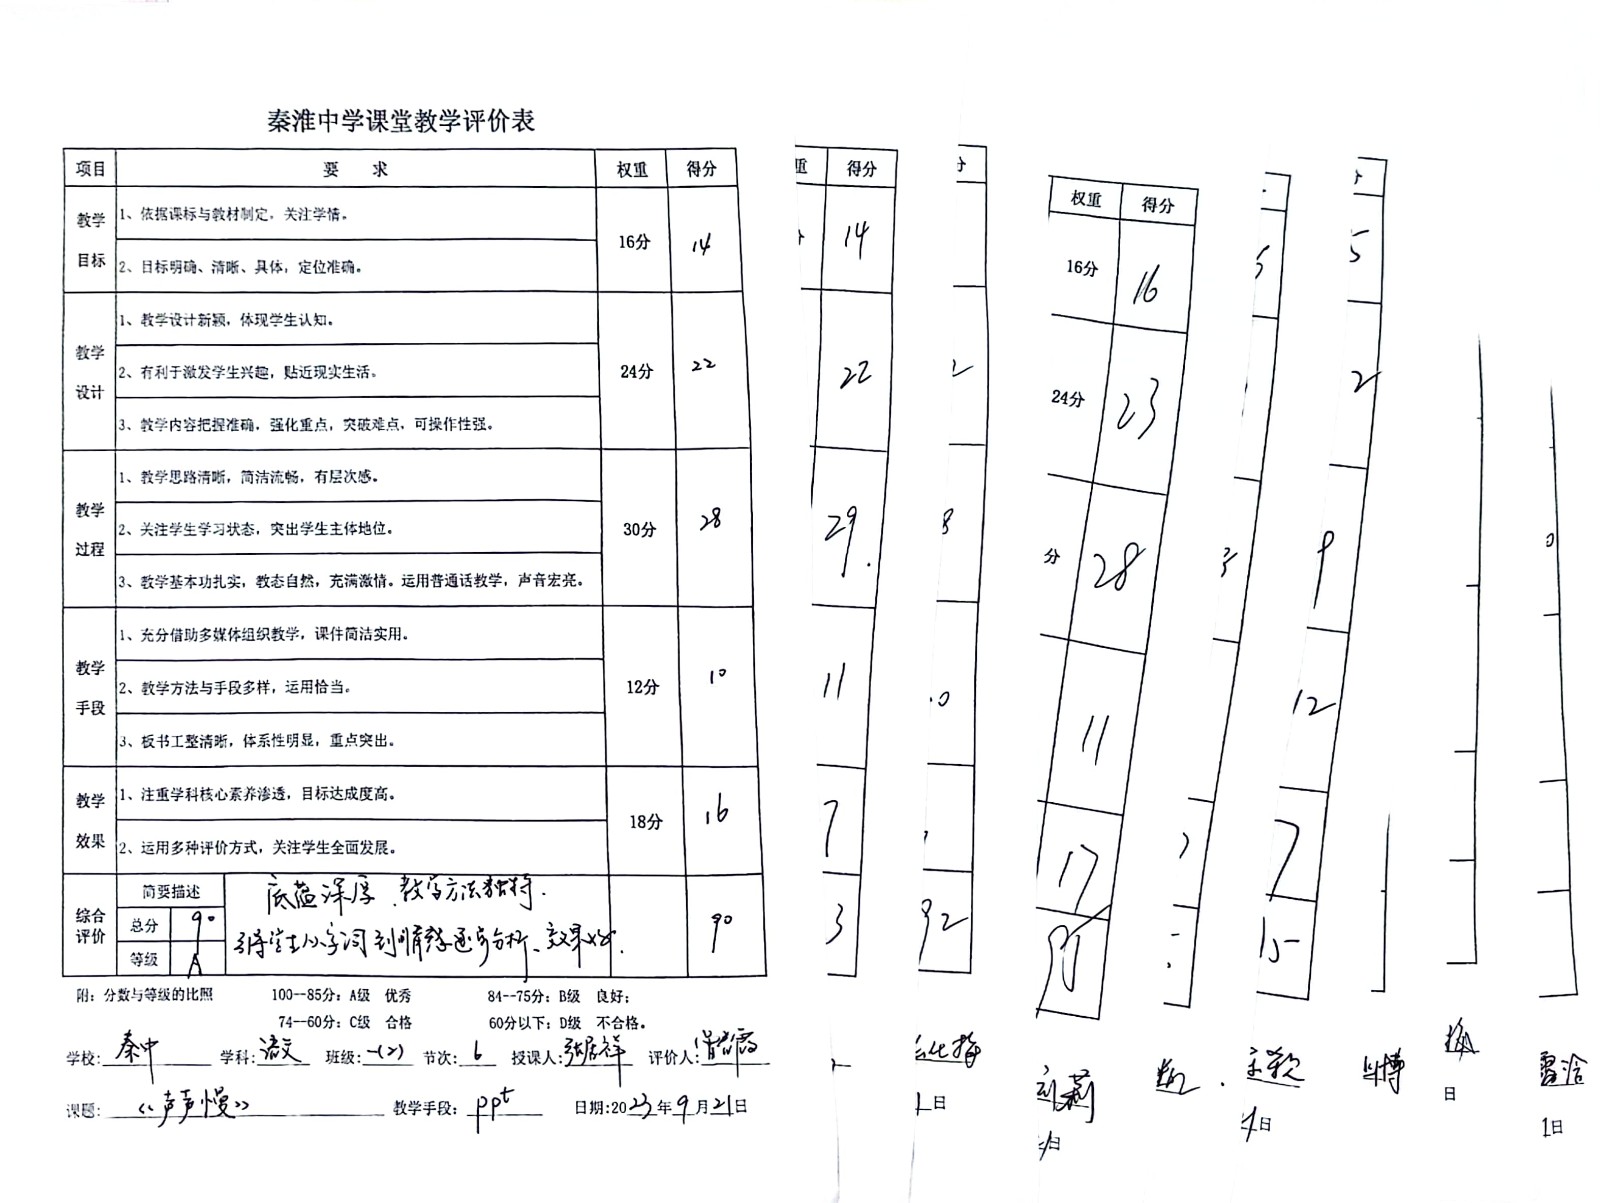 秦淮中学课堂教学评价表
项目 要 求 权重 得分
教学目标 1、依据课标与教材制定，关注学情。 16分 14
2、目标明确、清晰、具体，定位准确。
教学设计 1、教学设计新颖，体现学生认知。 24分 22
2、有利于激发学生兴趣，贴近现实生活。
3、教学内容把握准确，强化重点，突破难点，可操作性强。
教学过程 1、教学思路清晰，简洁流畅，有层次感。 30分 28
2、关注学生学习状态，突出学生主体地位。
3、教学基本功扎实，教态自然，充满激情。运用普通话教学，声音宏亮。
教学手段 1、充分借助多媒体组织教学，课件简洁实用。 12分 10
2、教学方法与手段多样，运用恰当。
3、板书工整清晰，体系性明显，重点突出。
教学效果 1、注重学科核心素养渗透，目标达成度高。 18分 16
2、运用多种评价方式，关注学生全面发展。
综合评价 简要描述 底蕴深厚、教学方法独特.
总分 90 引导学生从字词到情感逐步分析、效果好. 90
等级 A
附：分数与等级的比照 100--85分：A级 优秀 84--75分：B级 良好；
74--60分：C级 合格 60分以下：D级 不合格。
学校：秦中 学科：语文 班级：一(2) 节次：6 授课人：张居祥 评价人：
课题：《声声慢》 教学手段：ppt 日期：2023年9月21日
重 得分
14
22
29.
11
7
3
2
8
0
92
日
权重 得分
16分 16
24分 23
分 28
11
17
刘莉
日
3
王颖
日
5
2
9
12
7
15
博
日
0
雷浛
1日